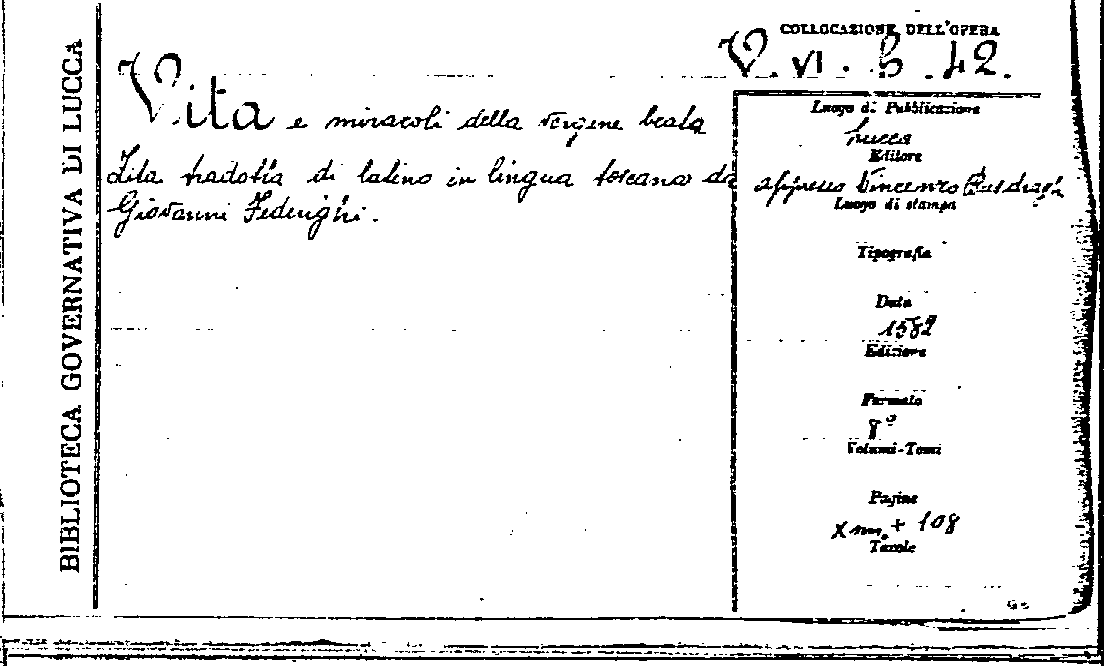 BIBLIOTECA GOVERNATIVA DI LUCCA
COLLOCAZIONE DELL'OPERA
V. VI. B. 42.
Vita e miracoli della vergine beata
Zita tradotta di latino in lingua toscana da
Giovanni Federighi.
Luogo di Pubblicazione
Lucca
Editore
appresso Vincenzo Busdraghi
Luogo di stampa
Tipografia
Data
1582
Edizione
Formato
8°
Volumi-Tomi
Pagine
+ 108
Tavole